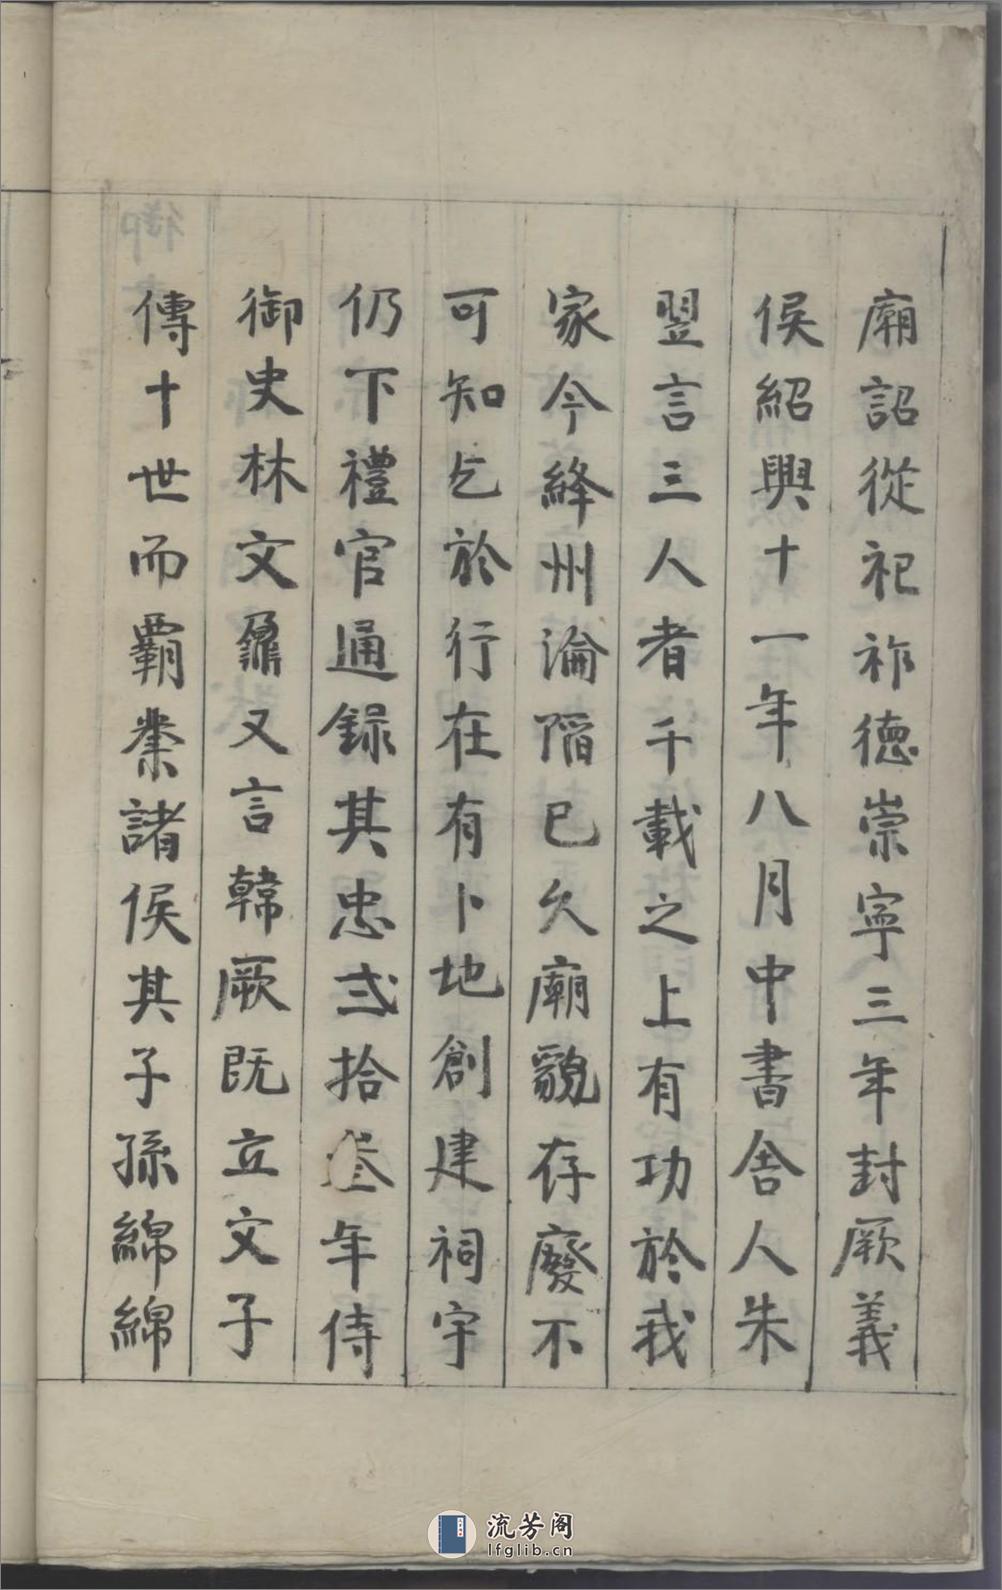 廟詔從祀祚德崇寧三年封厥義
侯紹興十一年八月中書舍人朱
翌言三人者千載之上有功於我
家今絳州淪陷已久廟貌存廢不
可知乞於行在有卜地創建祠宇
仍下禮官通録其忠弍拾叁年侍
御史林文鼐又言韓厥既立文子
傳十世而霸業諸侯其子孫綿綿
流芳阁
lfglib.cn